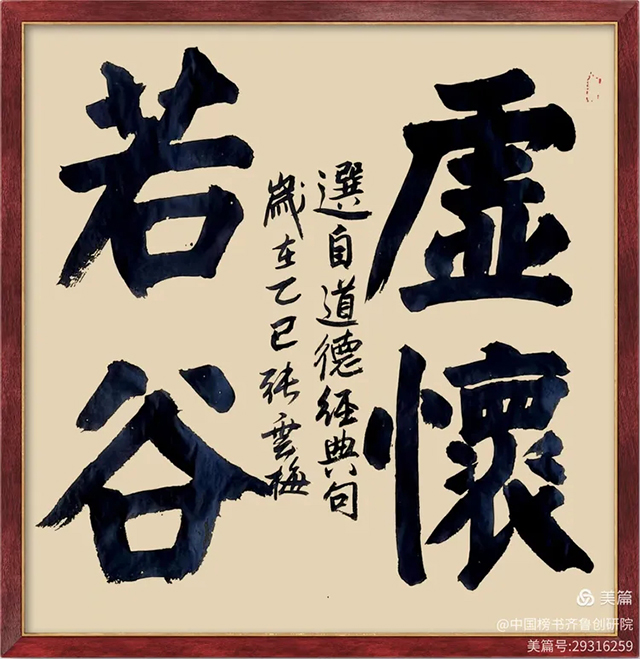 虛懷
若谷
選自道德經典句
歲在乙巳張雲梅
美篇
@中国榜书齐鲁创研院
美篇号:29316259